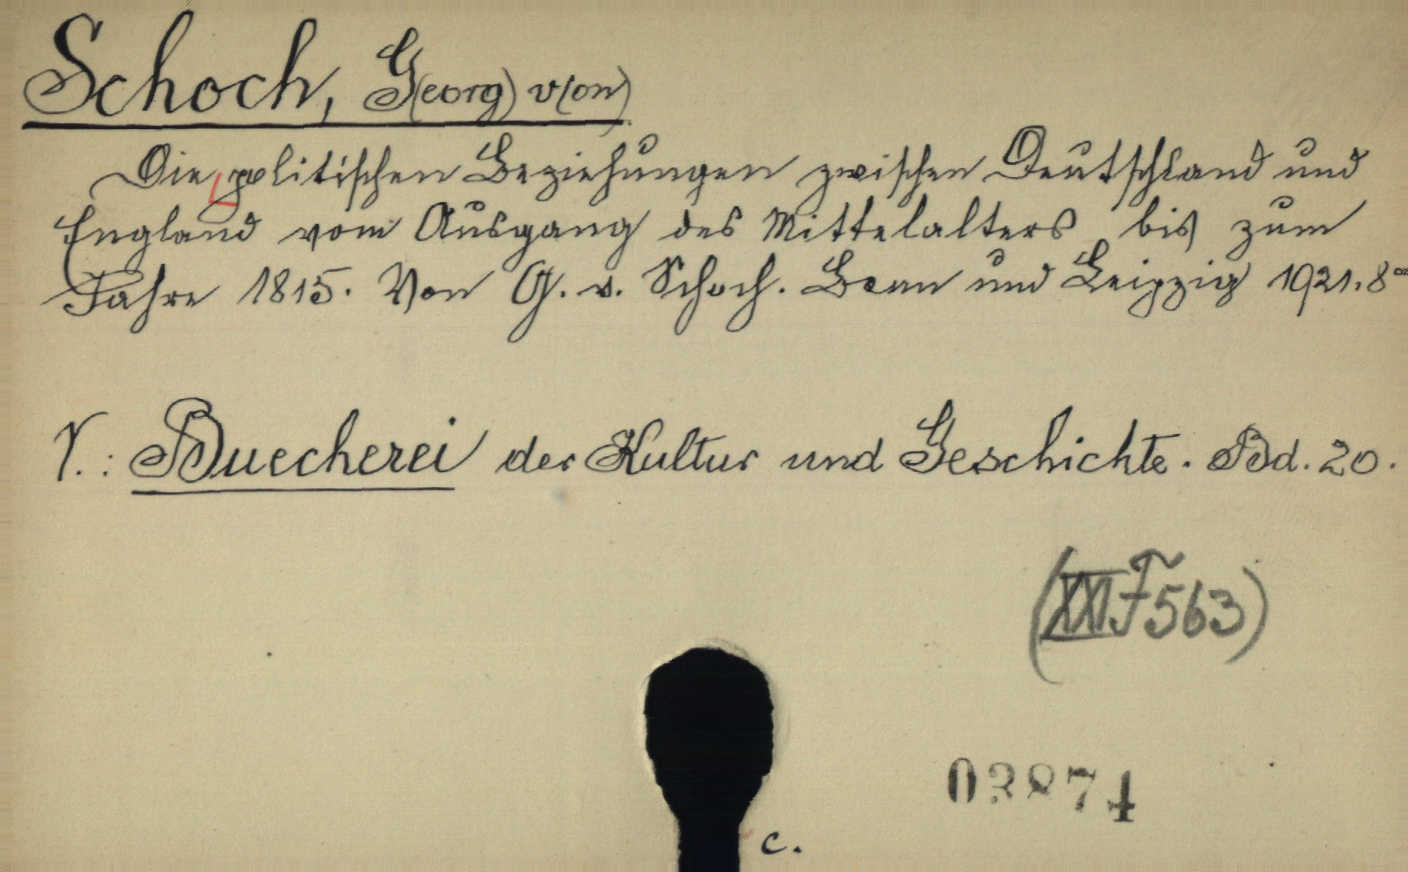 Schoch, G(eorg) v(on)
Die politischen Beziehungen zwischen Deutschland und
England vom Ausgang des Mittelalters bis zum
Jahre 1815. Von G. v. Schoch. Bonn und Leipzig 1921. 8°
V.: Buecherei der Kultur und Geschichte. Bd. 20.
(XXI F 563)
03874
c.